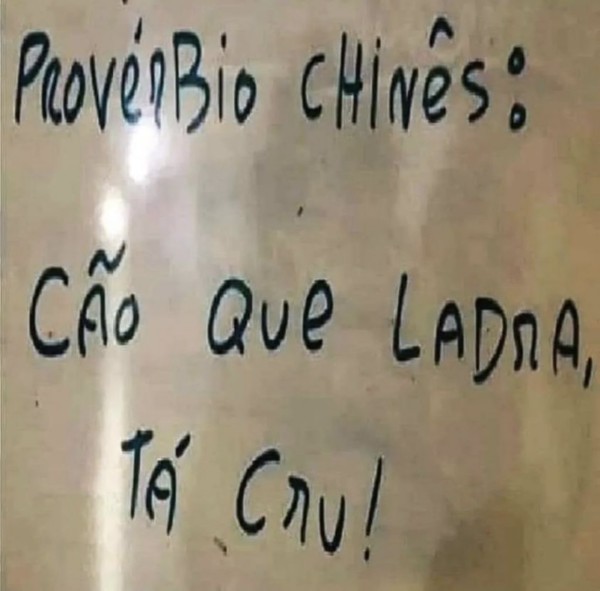 Provérbio Chinês:
Cão que ladra,
tá cru!